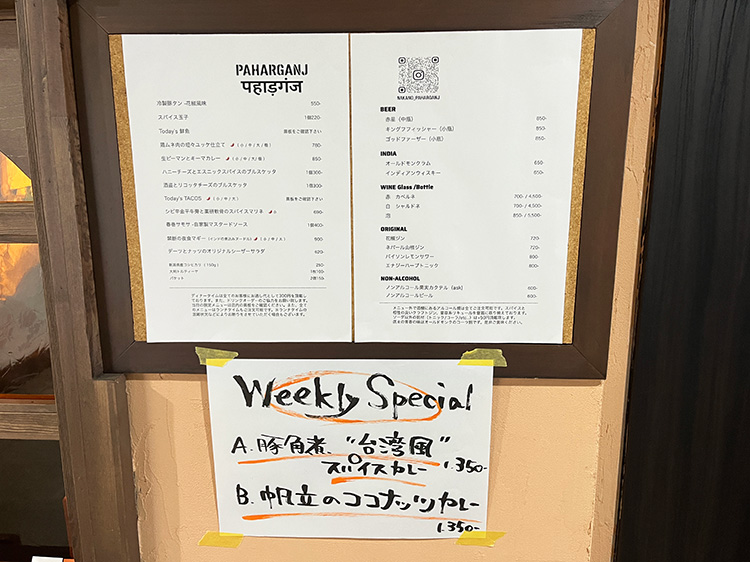 PAHARGANJ
पहाड़गंज
冷製豚タン -花椒風味 550-
スパイス玉子 1個220-
Today's 鮮魚 黒板をご確認下さい
鶏ムネ肉の坦々ユッケ仕立て (小/中/大/極) 790-
生ピーマンとキーマカレー (小/中/大/極) 850-
ハニーチーズとエスニックスパイスのブルスケッタ 1個300-
酒盗とリコッタチーズのブルスケッタ 1個300-
Today's TACOS (小/中/大) 黒板をご確認下さい
シビ辛金平牛蒡と薬研軟骨のスパイスマリネ 690-
春巻サモサ -自家製マスタードソース 1個400-
禁断の夜食マギー (インドの煮込みヌードル) (小/中/大) 900-
デーツとナッツのオリジナルシーザーサラダ 620-
新潟県産コシヒカリ (150g) 250-
大判トルティーヤ
バケット
NAKANO_PAHARGANJ
BEER
赤星 (中瓶) 850-
キングフィッシャー (小瓶) 850-
ゴッドファーザー (小瓶) 850-
INDIA
オールドモンクラム 650-
インディアンウィスキー 850-
WINE Glass /Bottle
赤 カベルネ 700- / 4,500-
白 シャルドネ 700- / 4,500-
泡 850- / 5,500-
ORIGINAL
花椒ジン 720-
ネパール山椒ジン 770-
バイソンレモンサワー
エナジーハーブトニック 800-
NON-ALCOHOL
ノンアルコール果実カクテル (ask) 600-
ノンアルコールビール 600-
Weekly Special
A. 豚角煮 "台湾風"
スパイスカレー 1.350-
B. 帆立のココナッツカレー
1.350-